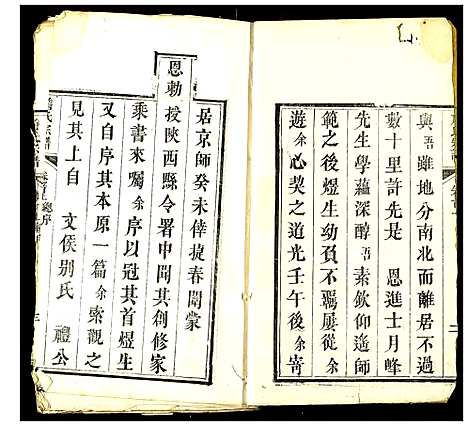 與吾雖地分南北而離居不過
數十里許先是 恩進士月峰
先生學蘊深醇吾素欽仰遥師
範之後煜生幼負不羈屢從余
遊余心契之道光壬午後余寄
居京師癸未倖捷春闈蒙
恩勅
授陝西縣令署中聞其創修家
乘書來囑余序以冠其首煜生
又自序其本原一篇余索觀之
見其上自 文侯别氏 禮公
氏宗譜
卷首上總序
三